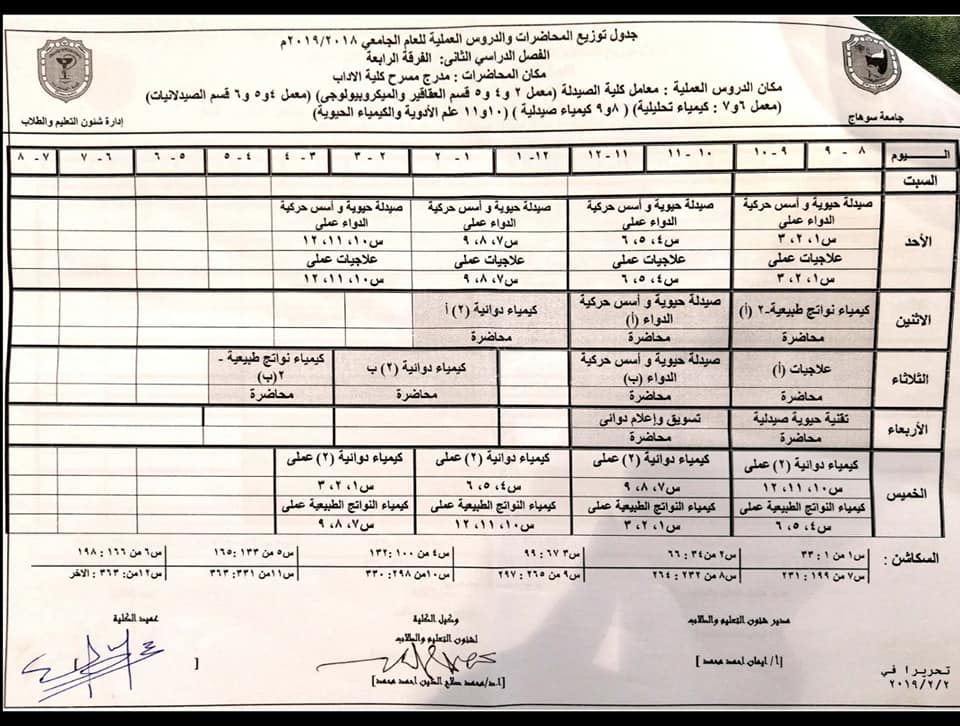 جدول توزيع المحاضرات والدروس العملية للعام الجامعي ٢٠١٩/٢٠١٨م
الفصل الدراسي الثانى: الفرقة الرابعة
مكان المحاضرات : مدرج مسرح كلية الاداب
مكان الدروس العملية : معامل كلية الصيدلة (معمل ٢ و٤ و٥ قسم العقاقير والميكروبيولوجى) (معمل ٤و٥ و٦ قسم الصيدلانيات)
(معمل ٦و٧ : كيمياء تحليلية) ( ٨و٩ كيمياء صيدلية ) (١٠و١١ علم الأدوية والكيمياء الحيوية)
جامعة سوهاج
إدارة شئون التعليم والطلاب
اليوم ٨ - ٩ ٩ - ١٠ ١٠ - ١١ ١١ - ١٢ ١٢ - ١ ١ - ٢ ٢ - ٣ ٣ - ٤ ٤ - ٥ ٥ - ٦ ٦ - ٧ ٧ - ٨
السبت
الأحد
صيدلة حيوية و أسس حركية الدواء عملى صيدلة حيوية و أسس حركية الدواء عملى صيدلة حيوية و أسس حركية الدواء عملى صيدلة حيوية و أسس حركية الدواء عملى
س١، ٢، ٣ س٤، ٥، ٦ س٧، ٨، ٩ س١٠، ١١، ١٢
علاجيات عملى علاجيات عملى علاجيات عملى علاجيات عملى
س١، ٢، ٣ س٤، ٥، ٦ س٧، ٨، ٩ س١٠، ١١، ١٢
الاثنين
كيمياء نواتج طبيعية-٢ (أ) صيدلة حيوية و أسس حركية الدواء (أ) كيمياء دوائية (٢) أ
محاضرة محاضرة محاضرة
الثلاثاء
علاجيات (أ) صيدلة حيوية و أسس حركية الدواء (ب) كيمياء دوائية (٢) ب كيمياء نواتج طبيعية - ٢(ب)
محاضرة محاضرة محاضرة محاضرة
الأربعاء
تقنية حيوية صيدلية تسويق وإعلام دوائى
محاضرة محاضرة
الخميس
كيمياء دوائية (٢) عملى كيمياء دوائية (٢) عملى كيمياء دوائية (٢) عملى كيمياء دوائية (٢) عملى
س١٠، ١١، ١٢ س٧، ٨، ٩ س٤، ٥، ٦ س١، ٢، ٣
كيمياء النواتج الطبيعية عملى كيمياء النواتج الطبيعية عملى كيمياء النواتج الطبيعية عملى كيمياء النواتج الطبيعية عملى
س٤، ٥، ٦ س١، ٢، ٣ س١٠، ١١، ١٢ س٧، ٨، ٩
السكاشن :
س١ من ١ : ٣٣ س٢ من ٣٤ : ٦٦ س٣ ٦٧ : ٩٩ س٤ من ١٠٠ : ١٣٢ س٥ من ١٣٣ : ١٦٥ س٦ من ١٦٦ : ١٩٨
س٧ من ١٩٩ : ٢٣١ س٨ من ٢٣٢ : ٢٦٤ س٩ من ٢٦٥ : ٢٩٧ س١٠من ٢٩٨ : ٣٣٠ س١١من ٣٣١ : ٣٦٣ س١٢من: ٣٦٣ : الآخر
مدير شئون التعليم والطلاب
وكيل الكلية
لشئون التعليم والطلاب
عميد الكلية
[أ/ ايمان احمد محمد ]
[أ.د/محمد صلاح الدين احمد محمد]
[
تحريرا في
٢٠١٩/٢/٢